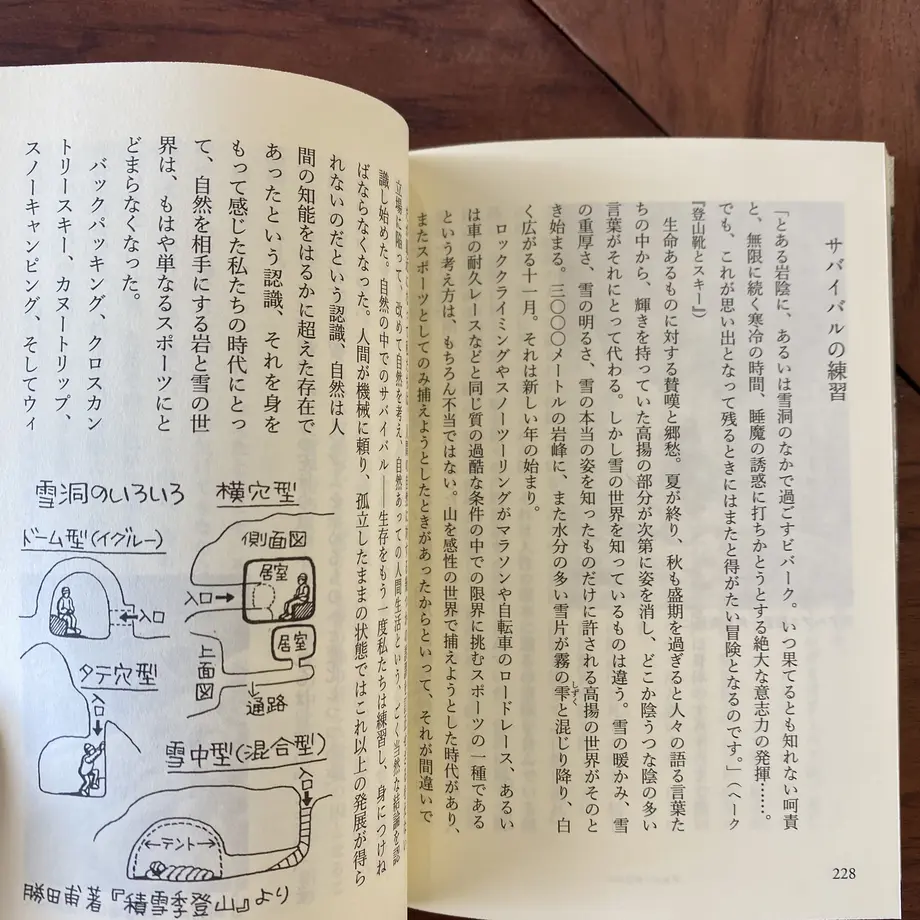 サバイバルの練習
「とある岩陰に、あるいは雪洞のなかで過ごすビバーク。いつ果てるとも知れない呵責
と、無限に続く寒冷の時間、睡魔の誘惑に打ちかとうとする絶大な意志力の発揮……。
でも、これが思い出となって残るときにはまたと得がたい冒険となるのです。」（ヘーク
『登山靴とスキー』）
生命あるものに対する賛嘆と郷愁。夏が終り、秋も盛期を過ぎると人々の語る言葉た
ちの中から、輝きを持っていた高揚の部分が次第に姿を消し、どこか陰うつな陰の多い
言葉がそれにとって代わる。しかし雪の世界を知っているものは違う。雪の暖かみ、雪
の重厚さ、雪の明るさ、雪の本当の姿を知ったものだけに許される高揚の世界がそのと
き始まる。三〇〇〇メートルの岩峰に、また水分の多い雪片が霧の雫と混じり降り、白
しずく
く広がる十一月。それは新しい年の始まり。
ロッククライミングやスノーツーリングがマラソンや自転車のロードレース、あるい
は車の耐久レースなどと同じ質の過酷な条件の中での限界に挑むスポーツの一種である
という考え方は、もちろん不当ではない。山を感性の世界で捕えようとした時代があり、
またスポーツとしてのみ捕えようとしたときがあったからといって、それが間違いで
228
立場に陥って、改めて自然を考え、自然あっての人間生活という、ごく当然な結論を認
識し始めた。自然の中でのサバイバル――生存をもう一度私たちは練習し、身につけね
ばならなくなった。人間が機械に頼り、孤立したままの状態ではこれ以上の発展が得ら
れないのだという認識、自然は人
間の知能をはるかに超えた存在で
あったという認識、それを身を
もって感じた私たちの時代にとっ
て、自然を相手にする岩と雪の世
界は、もはや単なるスポーツにと
どまらなくなった。
バックパッキング、クロスカン
トリースキー、カヌートリップ、
スノーキャンピング、そしてウィ
雪洞のいろいろ
横穴型
側面図
居室
入口
居室
上面図
通路
ドーム型(イグルー)
入口
タテ穴型
入口
雪中型(混合型)
入口
テント
勝田甫著『積雪季登山』より